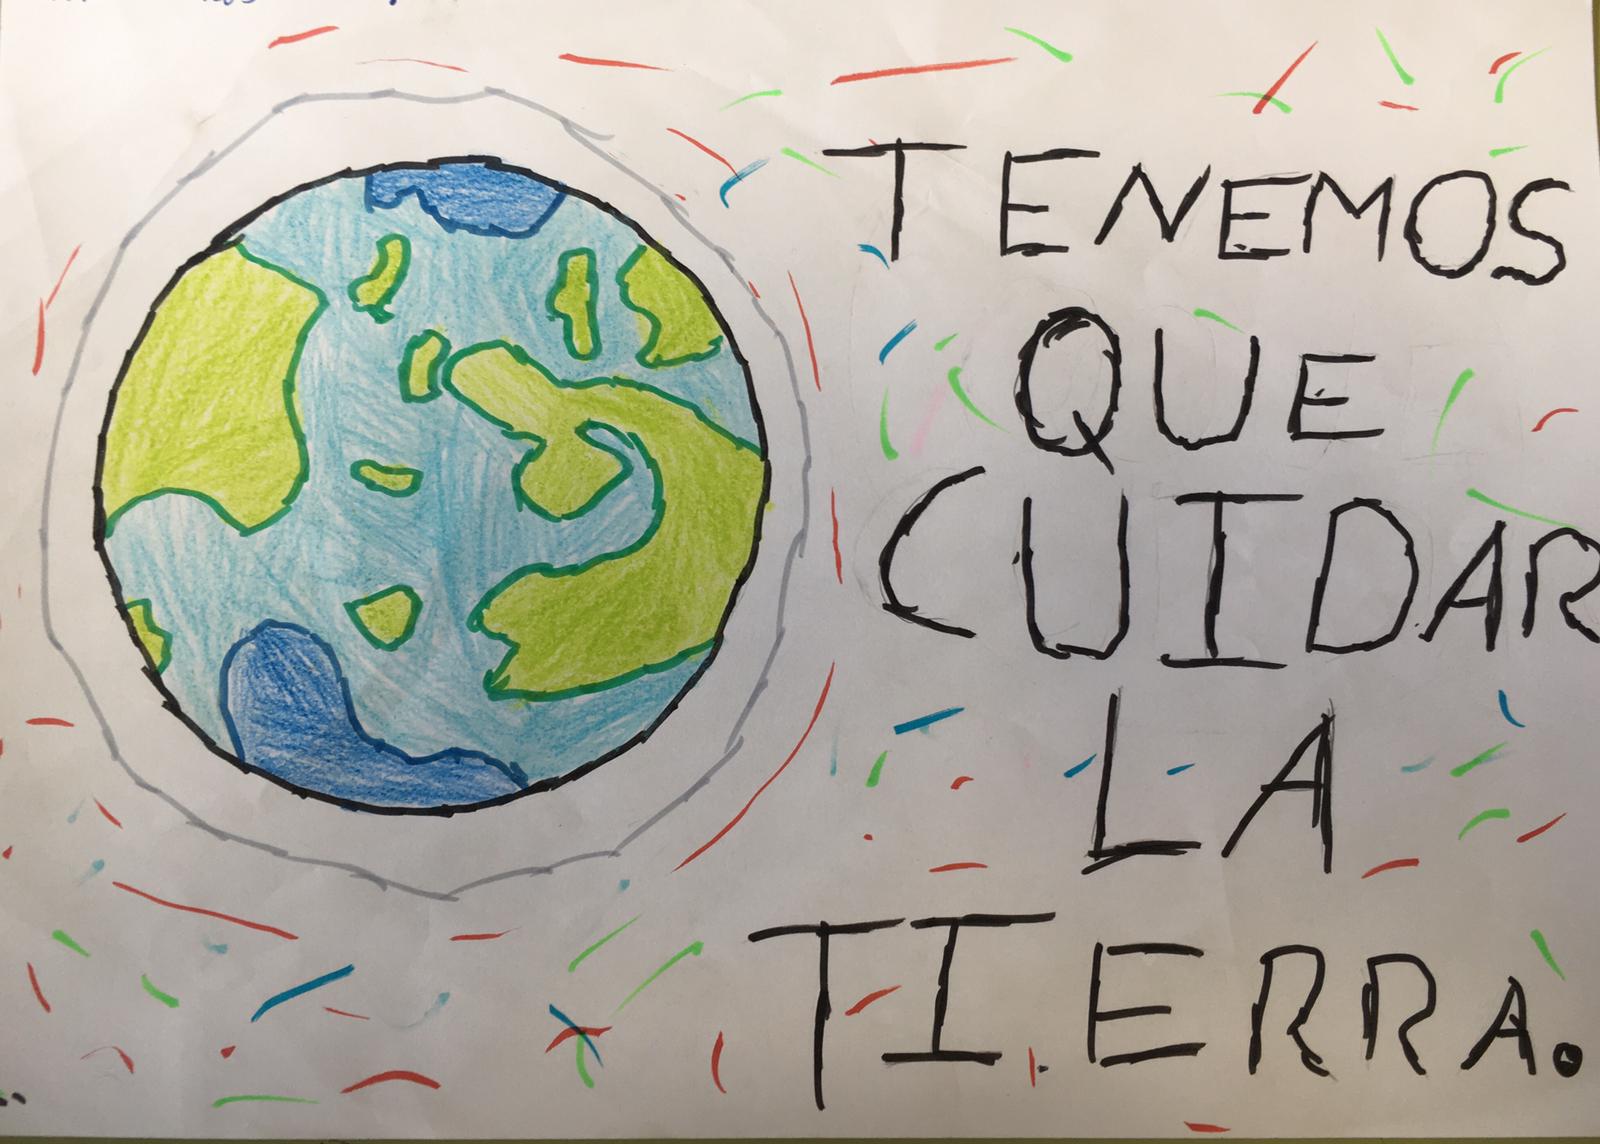 TENEMOS
QUE
CUIDAR
LA
TIERRA.